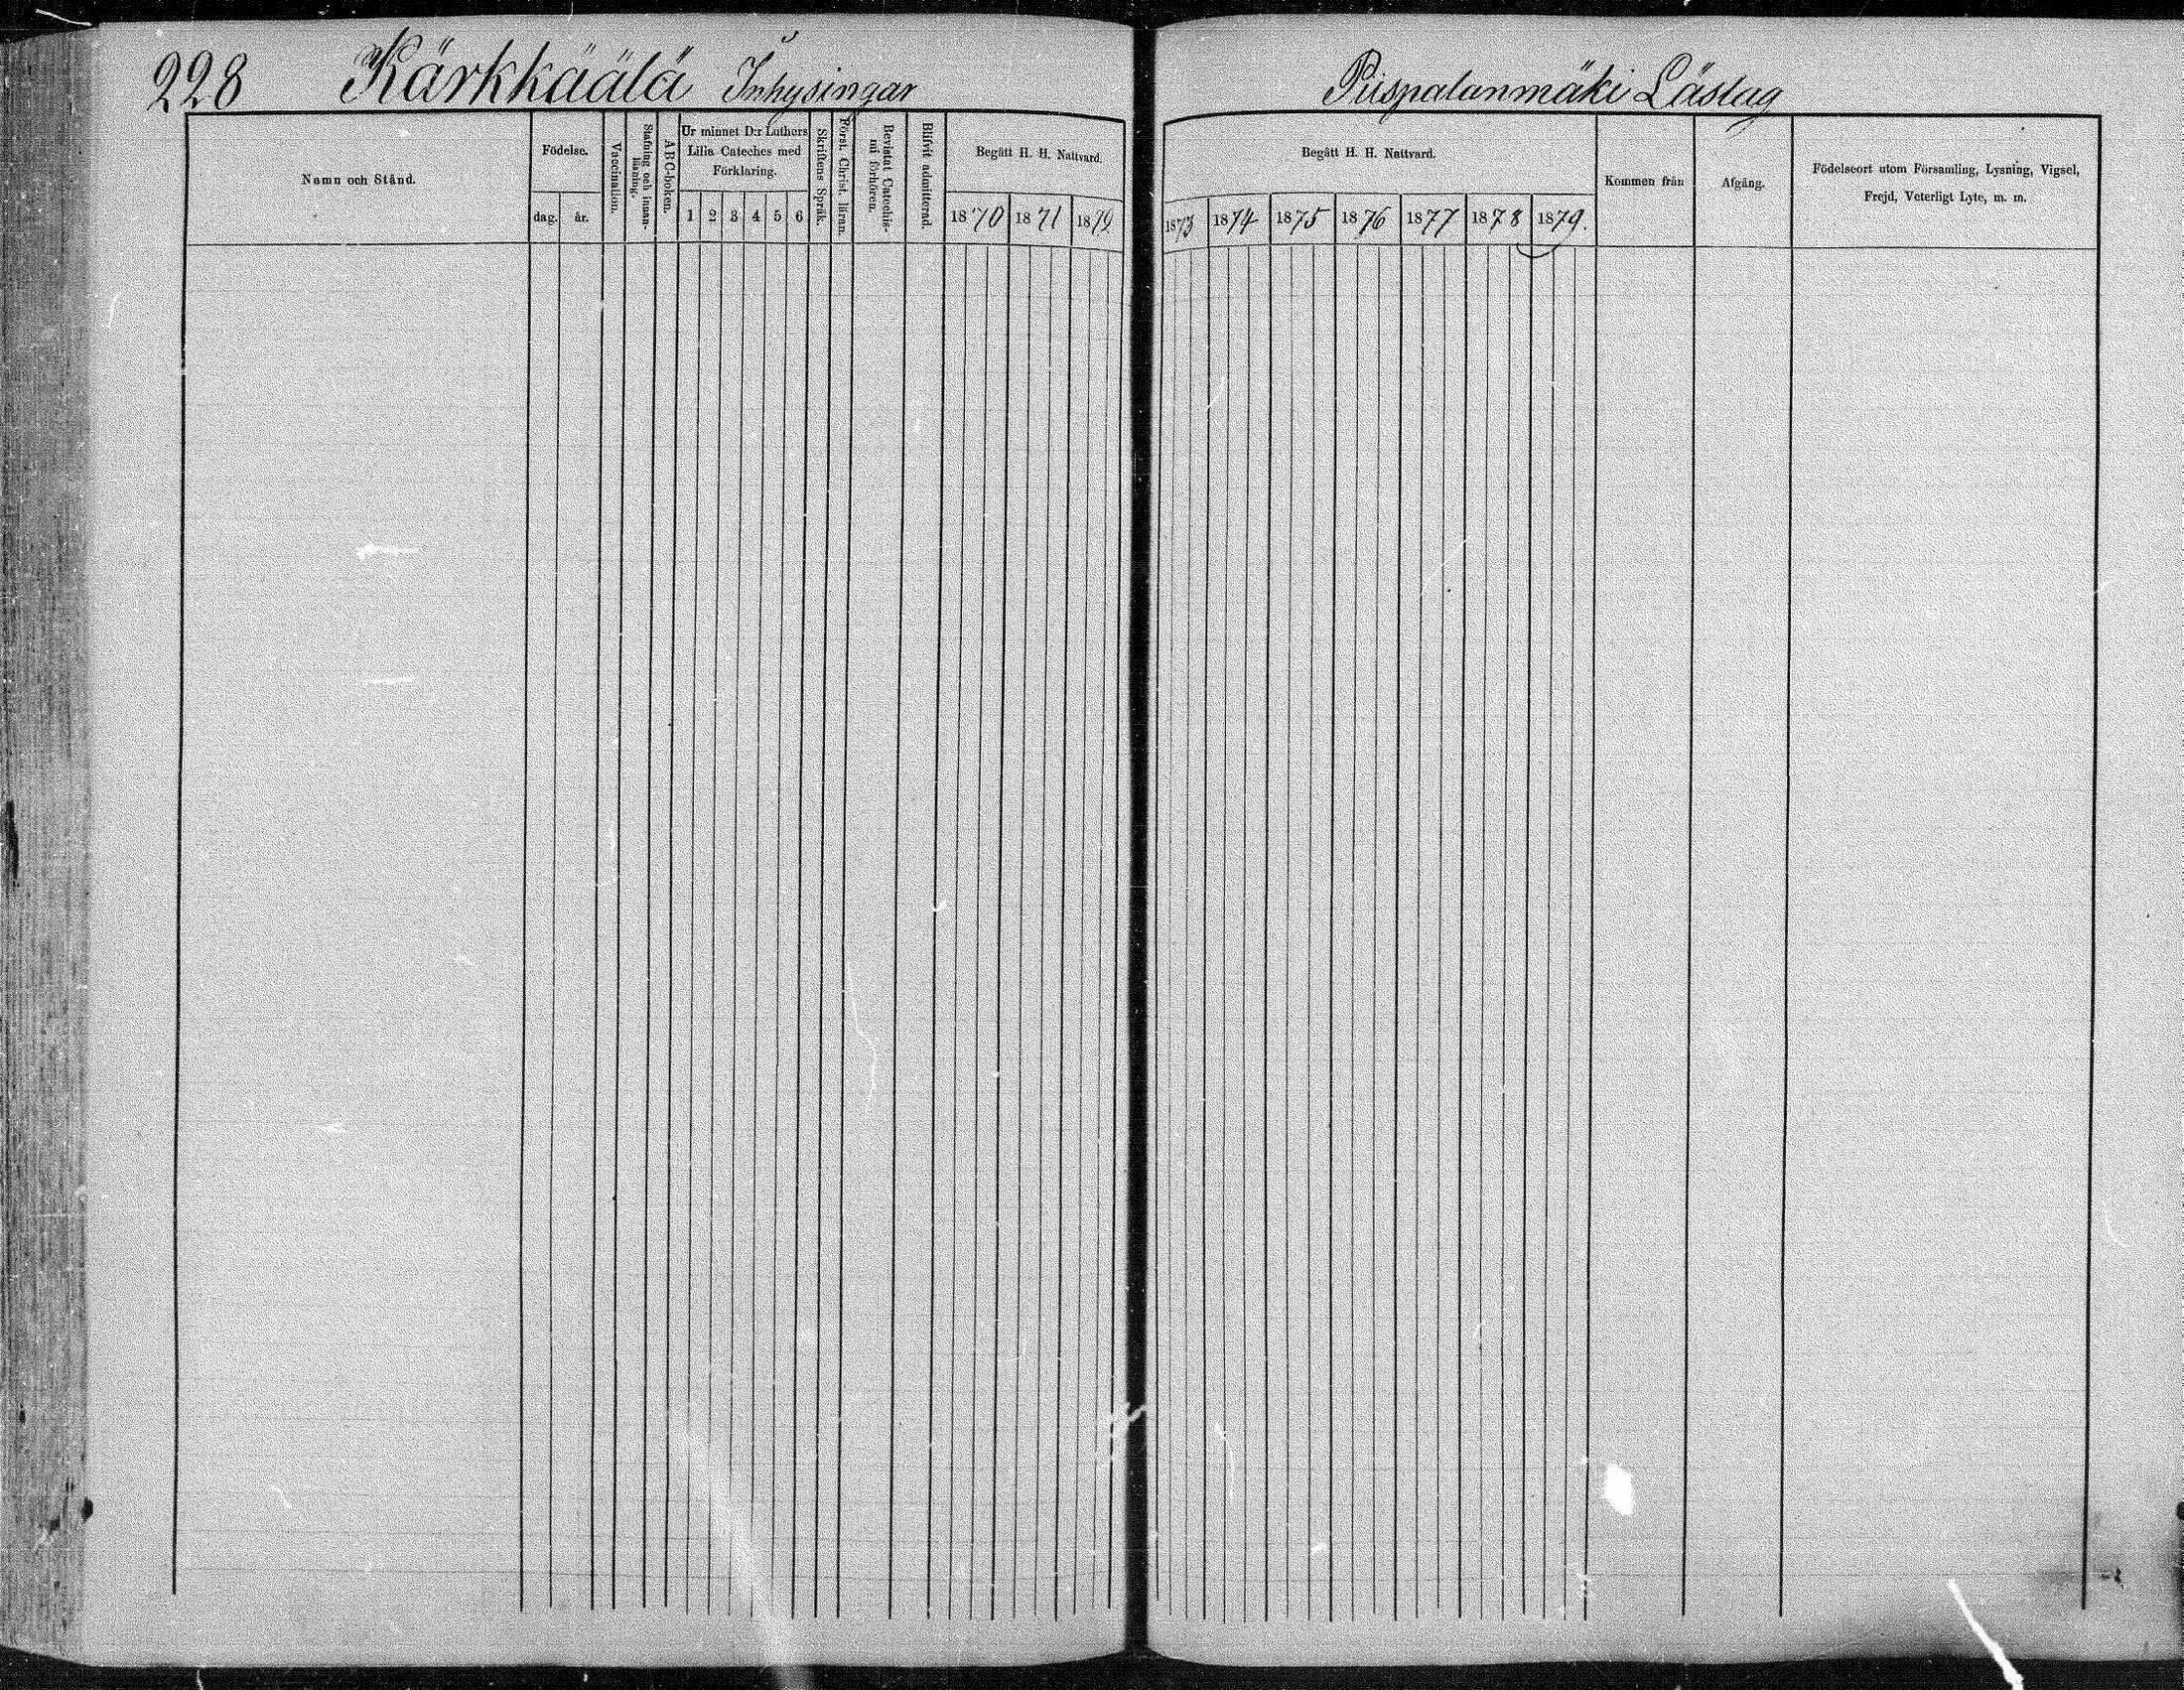 228 Kärkkäälä Inhysingar
Piispalanmäki Läslag
Namn och Stånd.
Födelse.
dag. år.
Vaccination.
Stafning och innan-
läsning.
ABC-boken.
Ur minnet D:r Luthers
Lilla Cateches med
Förklaring.
1 2 3 4 5 6
Skriftens Språk.
Först. Christ. läran.
Bevistat Catechis-
mi förhören.
Blifvit admitterad.
Begått H. H. Nattvard.
1870 1871 1872
Begått H. H. Nattvard.
1873 1874 1875 1876 1877 1878 1879.
Kommen från
Afgång.
Födelseort utom Församling, Lysning, Vigsel,
Frejd, Veterligt Lyte, m. m.